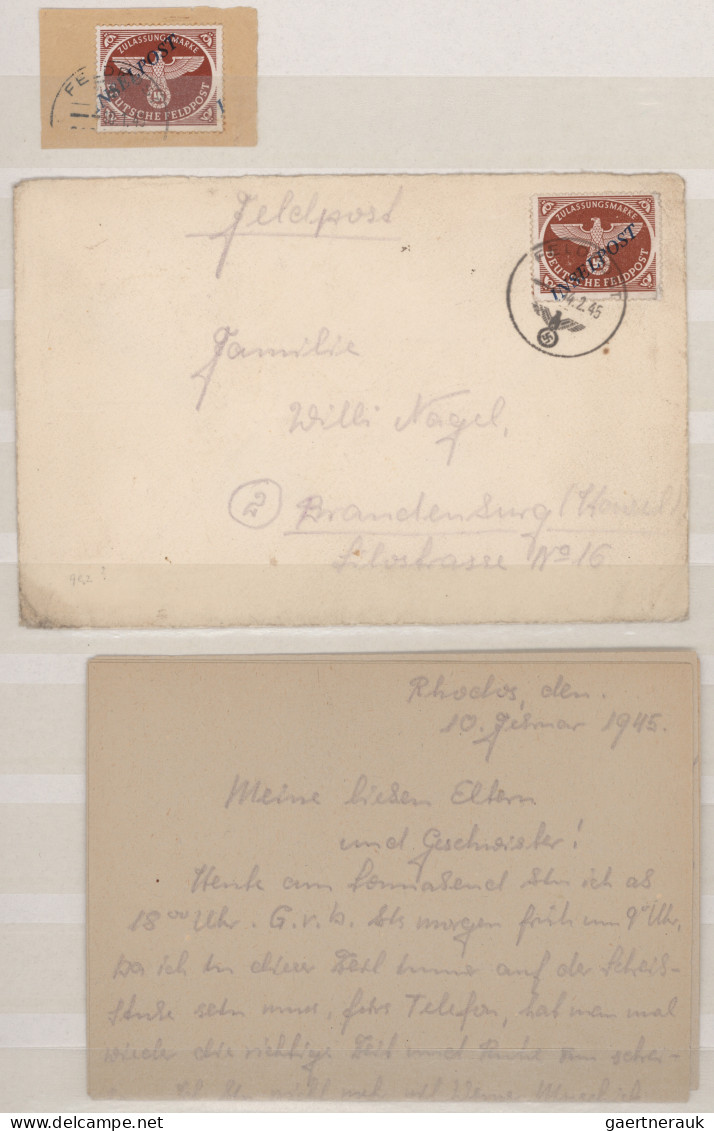 ZULASSUNGSMARKE
INSELPOST
DEUTSCHE FELDPOST
Feldpost
ZULASSUNGSMARKE
INSELPOST
DEUTSCHE FELDPOST
14.2.45
Familie
Willi Nagel,
(2) Brandenburg (Havel)
Silostrasse No 16
Rhodos, den.
10. Februar 1945.
Meine lieben Eltern
und Geschwister!
Heute am Sonnabend bin ich ab
18 00 Uhr. G.v.b. bis morgen früh um 9 00 Uhr,
Da ich in dieser Zeit immer auf der Schreib-
stube sein muss, fürs Telefon, hat man mal
wieder die richtige Zeit und Ruhe zum schrei-
gaertnerauk @ Delcampe.net